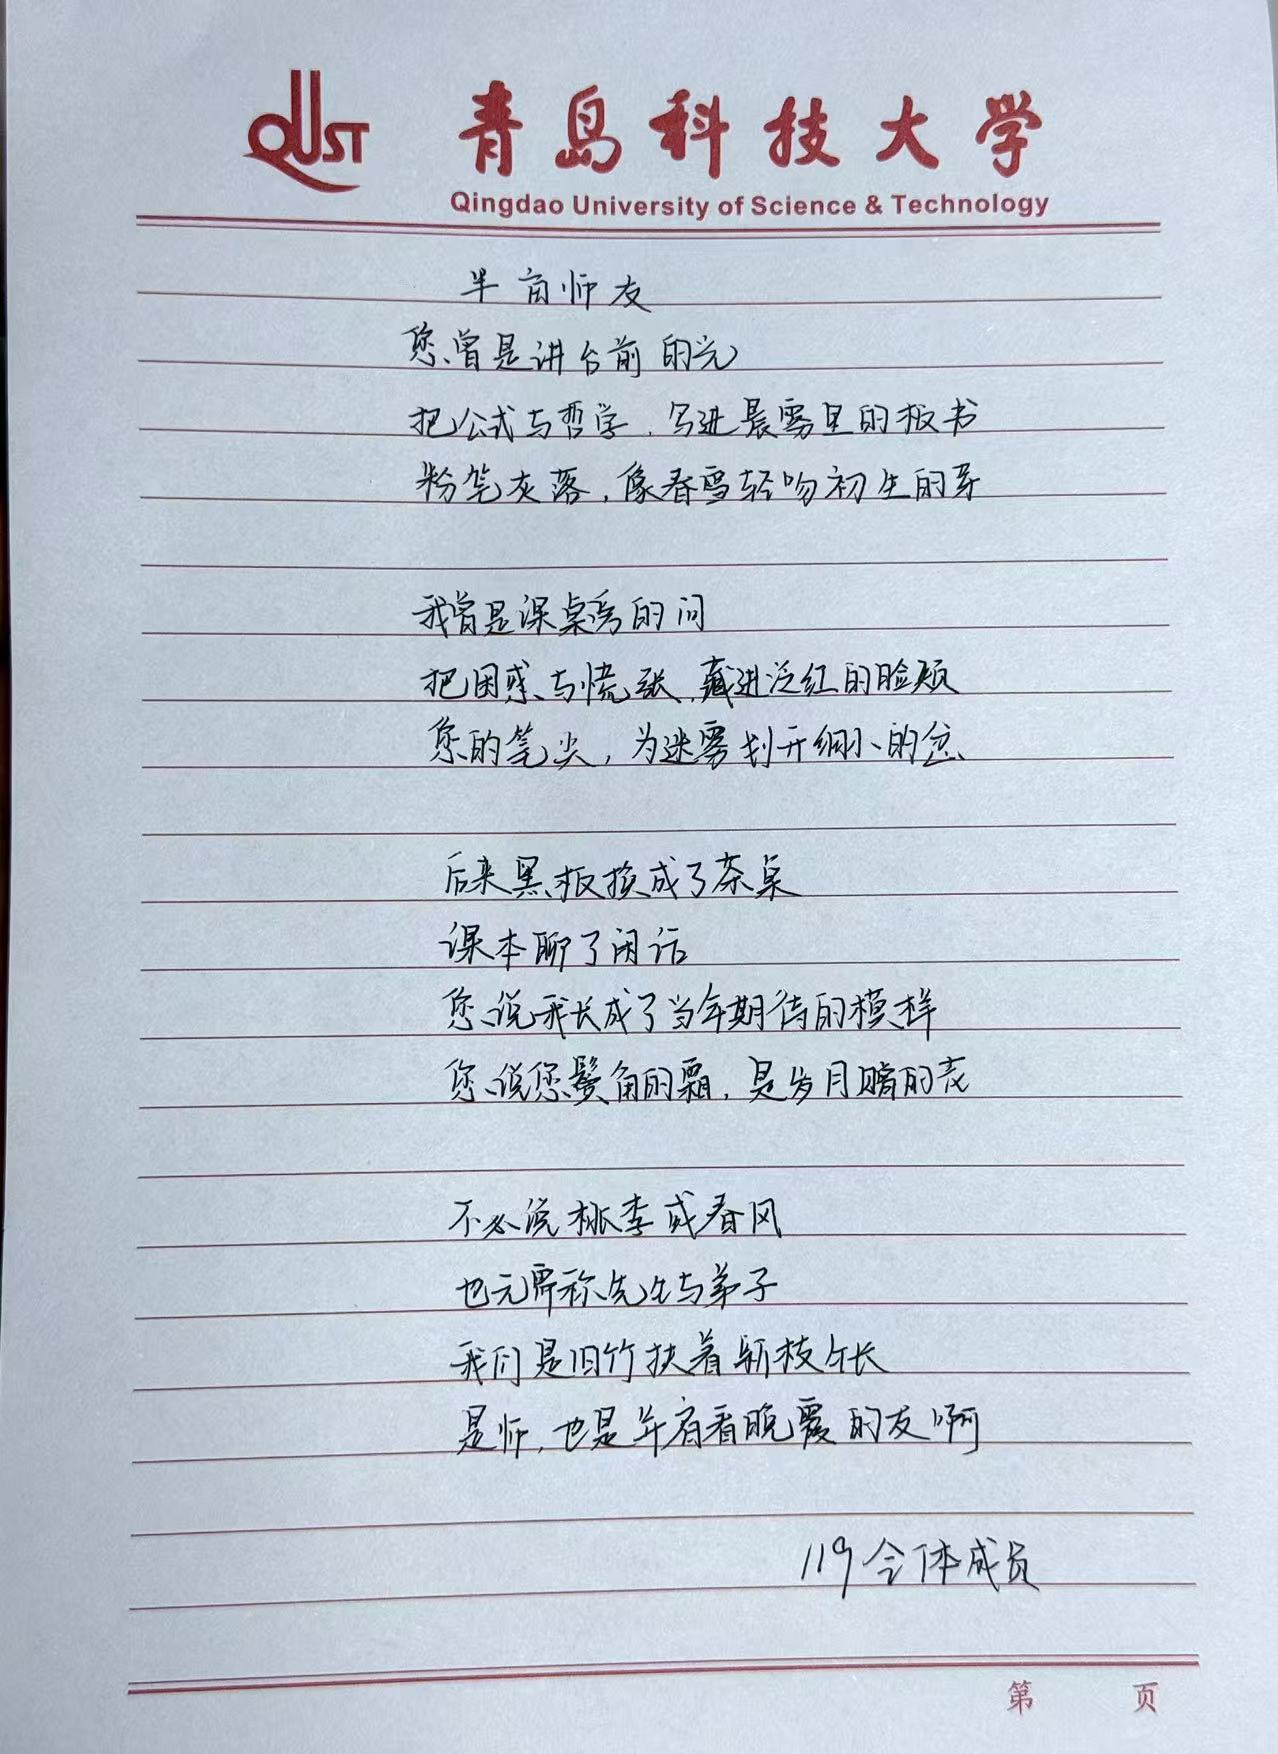 QUST 青岛科技大学
Qingdao University of Science & Technology
半亩师友
您曾是讲台前的光
把公式与哲学,写进晨雾里的板书
粉笔灰落,像春雪轻吻初生的芽
我曾是课桌旁的问
把困惑与慌张,藏进泛红的脸颊
您的笔尖,为迷雾划开细小的岔
后来黑板换成了茶桌
课本聊了闲话
您说我长成了当年期待的模样
您说您鬓角的霜,是岁月赠的花
不必说桃李或春风
也无需称先生与弟子
我们是旧竹扶着新枝生长
是师,也是并肩看晚霞的友啊
119全体成员
第 页